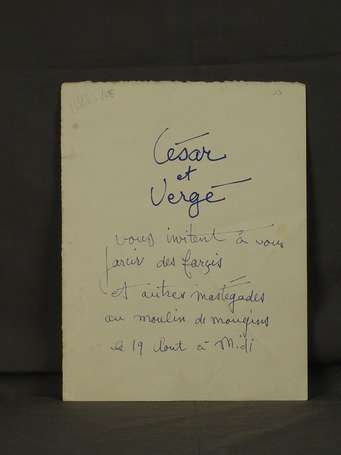 César
et
Vergé
vous invitent à vous
farcir des farcis
et autres mastégades
au moulin de mougins
le 19 Aout à Midi